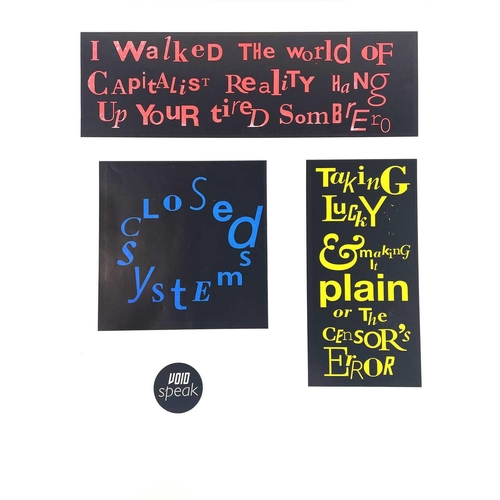 I WalkeD THe woRld oF
CAPitALiST ReaLiTY HaNg
Up YOUR tireD SomBrEro
CLOSed systEms
TakinG
LucKy
& making
It
plain
or THe
CENSOR's
ErrOR
VOID
speak